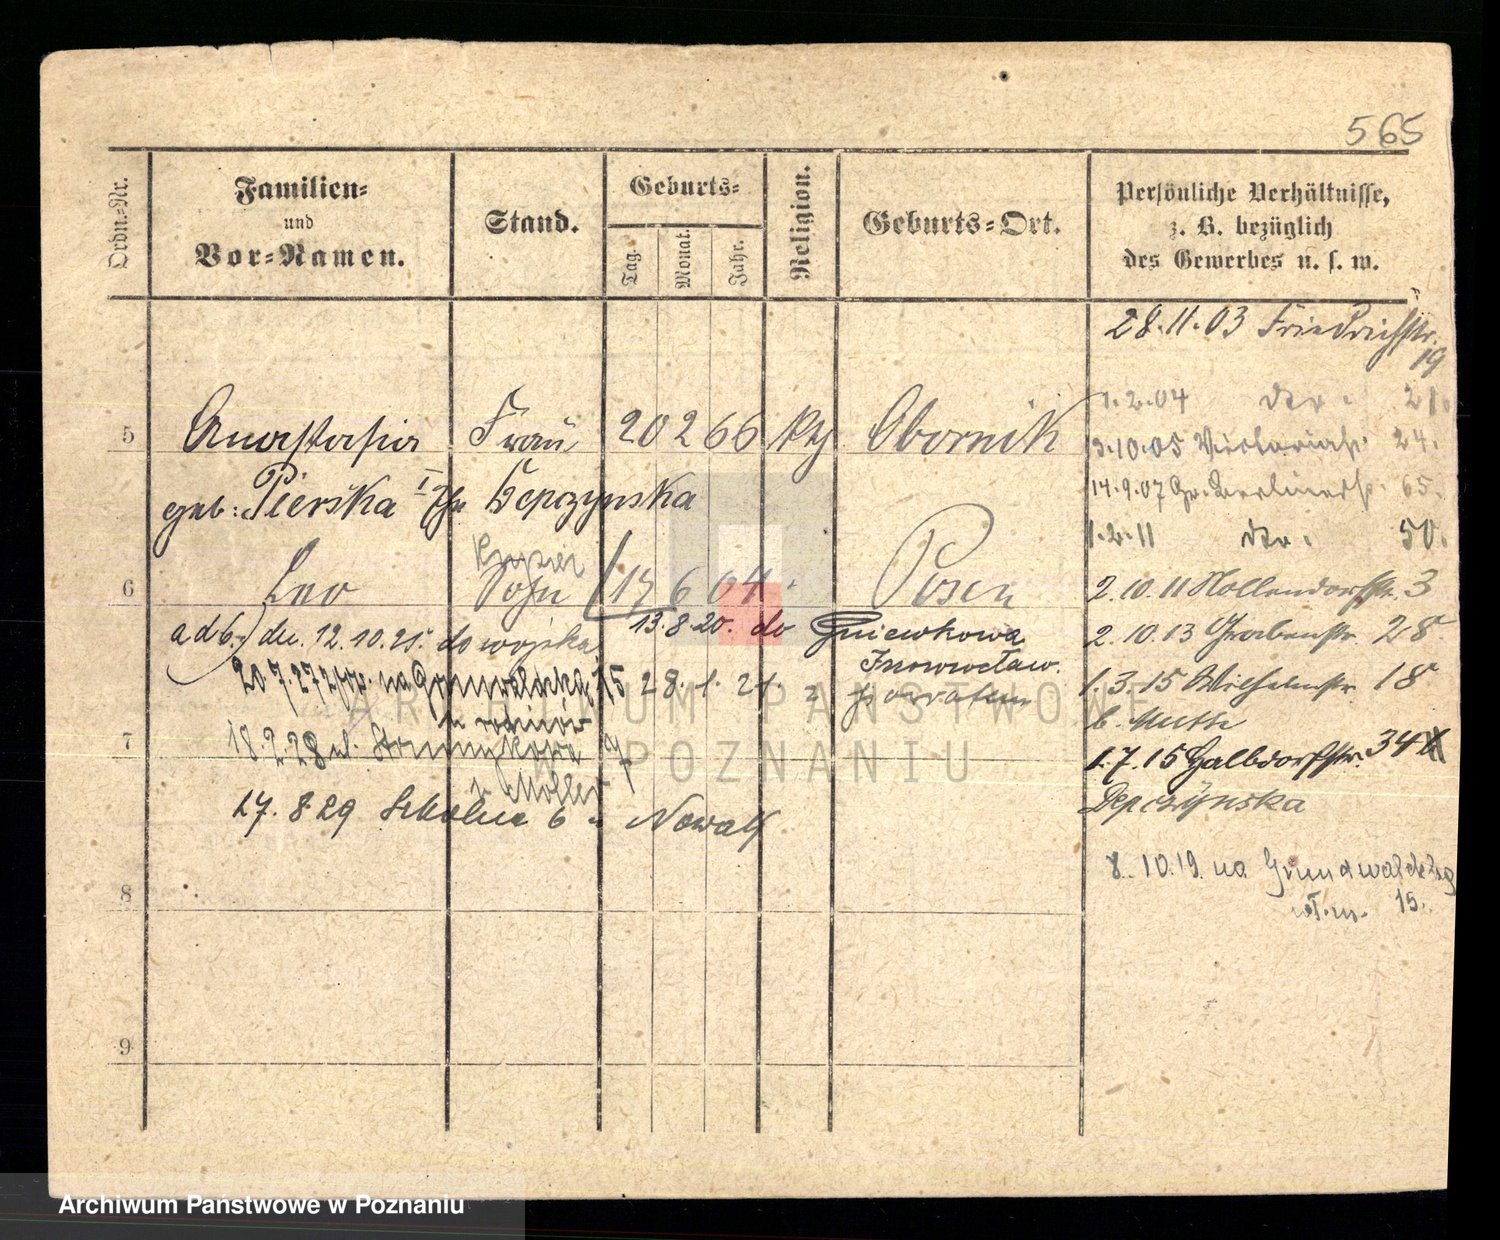 565
Ordn.-Nr.
Familien-
und
Vor-Namen.
Stand.
Geburts-
Tag.
Monat.
Jahr.
Religion.
Geburts-Ort.
Persönliche Verhältnisse,
z. B. bezüglich
des Gewerbes u. s. w.
28.11.03 Friedrichstr.
19
1.2.04 dto. 21.
3.10.05 Victoriastr. 24.
14.9.07 Gr. Berlinerstr. 65.
1.2.11 dto. 50.
2.10.11 Nollendorfstr. 3
2.10.13 Grabenstr. 28
1.3.15 Wilhelmstr. 18
b. Muth
1.7.15 Halbdorfstr. 34
Depczynska
8.10.19. na Grundwaldzką
15.
5 Anastasia Frau 20 2 66 Obornik
geb. Pierska Depczynska
6 Leo Sohn 17 6 04 Posen
ad 6.) du. 12.10.25. do wojska
13.8.20. do Gniewkowa
Inowrocław.
20.7.27 na 15 28.1.21. z powrotem
7 18.2.28 ul.
z Möller
17.8.29 Szkolna 6 Nowak
8
9
ARCHIWUM PAŃSTWOWE
W POZNANIU
Archiwum Państwowe w Poznaniu